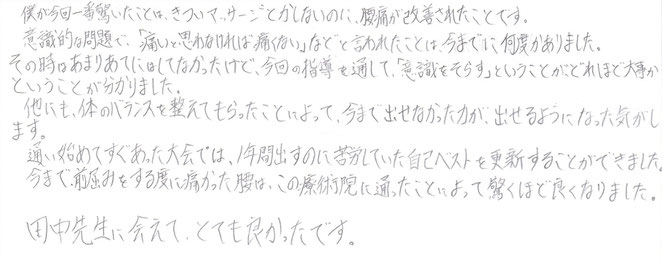 僕が今回一番驚いたことは、きついマッサージとかしないのに、腰痛が改善されたことです。
意識的な問題で、「痛いと思わなければ痛くない」などと言われたことは、今までに何度かありました。
その時はあまりあてにはしてなかったけど、今回の指導を通して、「意識をそらす」ということがどれほど大事か
ということが分かりました。
他にも、体のバランスを整えてもらったことによって、今まで出せなかった力が、出せるようになった気がし
ます。
通い始めてすぐあった大会では、1年間出すのに苦労していた自己ベストを更新することができました。
今まで、前屈みをする度に痛かった腰は、この療術院に通ったことによって驚くほど良くなりました。
田中先生に会えて、とても良かったです。